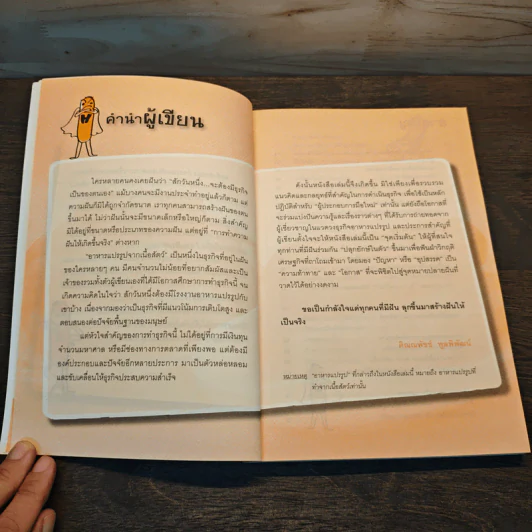 คำนำผู้เขียน
ใครหลายคนคงเคยฝันว่า "สักวันหนึ่ง...จะต้องมีธุรกิจ
เป็นของตนเอง" แม้บางคนจะมีงานประจำทำอยู่แล้วก็ตาม แต่
ความฝันก็มิได้ถูกจำกัดขนาด เราทุกคนสามารถสร้างฝันของตน
ขึ้นมาได้ ไม่ว่าฝันนั้นจะมีขนาดเล็กหรือใหญ่ก็ตาม สิ่งสำคัญ
มิได้อยู่ที่ขนาดหรือประเภทของความฝัน แต่อยู่ที่ "การทำความ
ฝันให้เกิดขึ้นจริง" ต่างหาก
"อาหารแปรรูปจากเนื้อสัตว์" เป็นหนึ่งในธุรกิจที่อยู่ในฝัน
ของใครหลายๆ คน มีคนจำนวนไม่น้อยที่อยากสัมผัสและเป็น
เจ้าของรวมทั้งตัวผู้เขียนเองที่ได้มีโอกาสศึกษาการทำธุรกิจนี้ จน
เกิดความคิดในใจว่า สักวันหนึ่งต้องมีโรงงานอาหารแปรรูปกับ
เขาบ้าง เนื่องจากมองว่าเป็นธุรกิจที่มีแนวโน้มการเติบโตสูง และ
ตอบสนองต่อปัจจัยพื้นฐานของมนุษย์
แต่หัวใจสำคัญของการทำธุรกิจนี้ ไม่ได้อยู่ที่การมีเงินทุน
จำนวนมหาศาล หรือมีช่องทางการตลาดที่เพียงพอ แต่ต้องมี
องค์ประกอบและปัจจัยอีกหลายประการ มาเป็นตัวหล่อหลอม
และขับเคลื่อนให้ธุรกิจประสบความสำเร็จ
ดังนั้นหนังสือเล่มนี้จึงเกิดขึ้น มิใช่เพียงเพื่อรวบรวม
แนวคิดและกลยุทธ์ที่สำคัญในการดำเนินธุรกิจ เพื่อใช้เป็นหลัก
ปฏิบัติสำหรับ "ผู้ประกอบการมือใหม่" เท่านั้น แต่ยังถือโอกาสที่
จะร่วมแบ่งปันความรู้และเรื่องราวต่างๆ ที่ได้รับการถ่ายทอดจาก
ผู้เชี่ยวชาญในแวดวงธุรกิจอาหารแปรรูป และประการสำคัญที่
ผู้เขียนตั้งใจจะให้หนังสือเล่มนี้เป็น "จุดเริ่มต้น" ให้ผู้ที่สนใจ
ทุกท่านที่มีฝันร่วมกัน "ปลุกยักษ์ในตัว" ขึ้นมาเพื่อฟันฝ่าวิกฤติ
เศรษฐกิจที่ถาโถมเข้ามา โดยมอง "ปัญหา" หรือ "อุปสรรค" เป็น
"ความท้าทาย" และ "โอกาส" ที่จะพิชิตไปสู่จุดหมายปลายฝันที่
วาดไว้ได้อย่างงดงาม
ขอเป็นกำลังใจแด่ทุกคนที่มีฝัน ลุกขึ้นมาสร้างฝันให้
เป็นจริง
หมายเหตุ "อาหารแปรรูป" ที่กล่าวถึงในหนังสือเล่มนี้ หมายถึง อาหารแปรรูปที่
ทำจากเนื้อสัตว์เท่านั้น